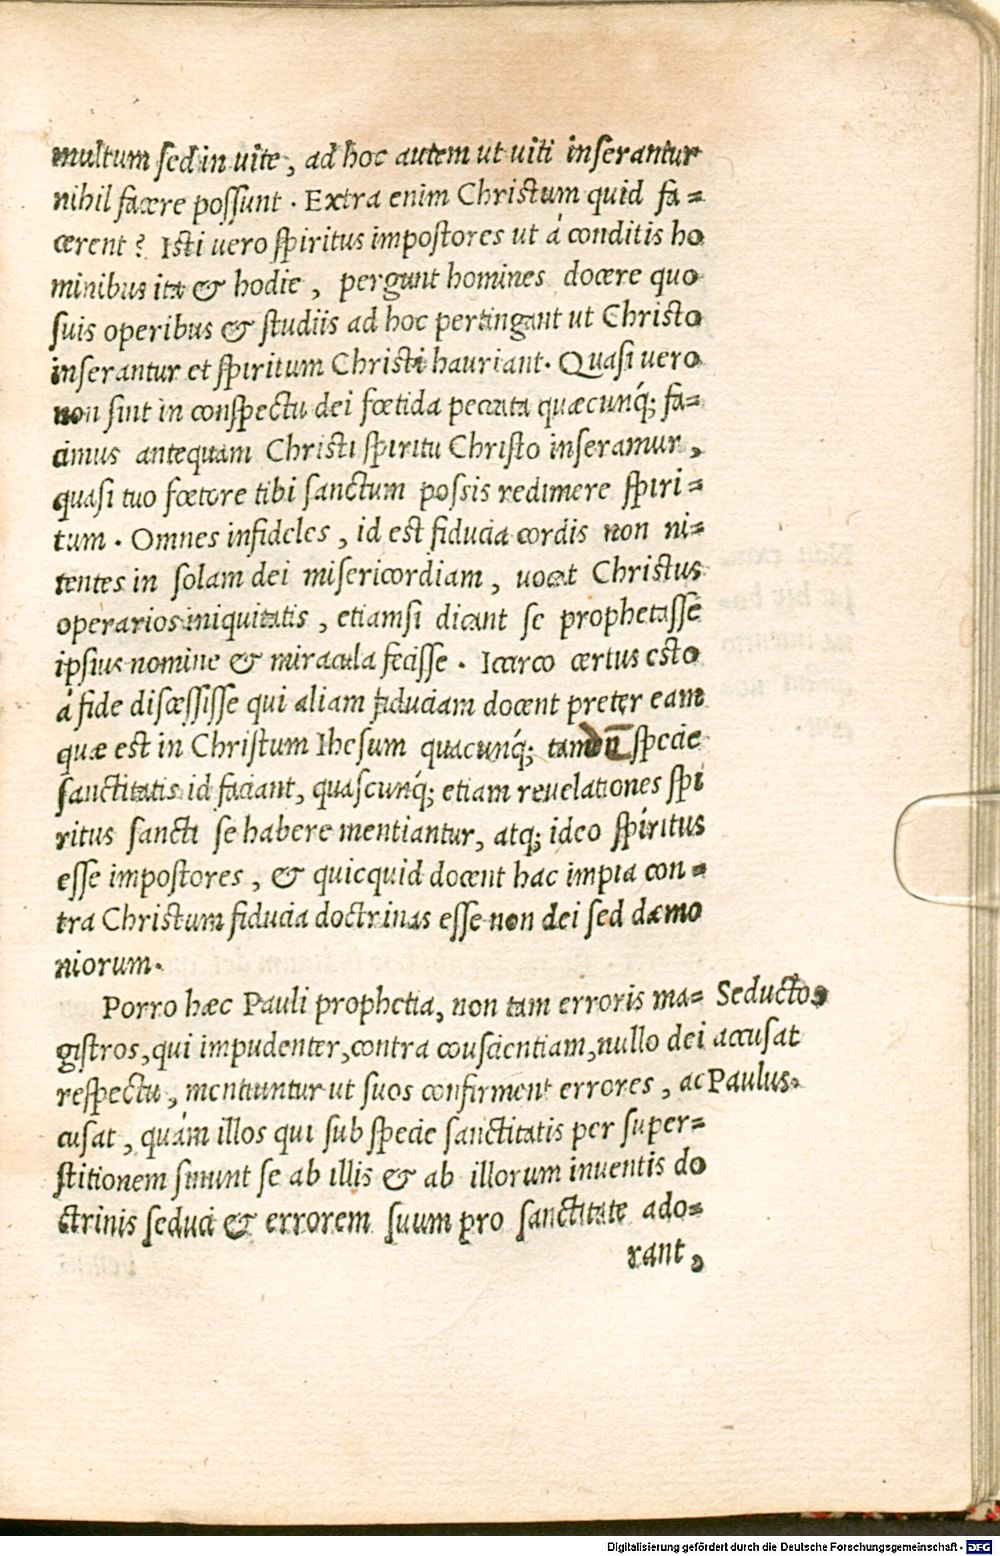 multum sed in uite, ad hoc autem ut uiti inserantur
nihil facere possunt. Extra enim Christum quid fa-
cerent? Isti uero spiritus impostores ut á conditis ho
minibus ita & hodie, pergunt homines docere quo
suis operibus & studiis ad hoc pertingant ut Christo
inserantur et spiritum Christi hauriant. Quasi uero
non sint in conspectu dei fœtida peccata quæcunq́; fa-
cimus antequam Christi spiritu Christo inseramur,
quasi tuo fœtore tibi sanctum possis redimere spiri-
tum. Omnes infideles, id est fiducia cordis non ni-
tentes in solam dei misericordiam, uocat Christus
operarios iniquitatis, etiamsi dicant se prophetasse
ipsius nomine & miracula fecisse. Iccirco certus esto
á fide discessisse qui aliam fiduciam docent preter eam
quæ est in Christum Ihesum quacunq́; specie
sanctitatis id faciant, quascunq́; etiam reuelationes spi
ritus sancti se habere mentiantur, atq; ideo spiritus
esse impostores, & quicquid docent hac impia con-
tra Christum fiducia doctrinas esse non dei sed dæmo
niorum.
Porro hæc Pauli prophetia, non tam erroris ma-
gistros, qui impudenter, contra couscientiam, nullo dei
respectu, mentiuntur ut suos confirment errores, ac
cusat, quàm illos qui sub specie sanctitatis per super-
stitionem sinunt se ab illis & ab illorum inuentis do
ctrinis seduci & errorem suum pro sanctitate ado-
rant,
Seducto
accusat
Paulus.
Digitalisierung gefördert durch die Deutsche Forschungsgemeinschaft - DFG